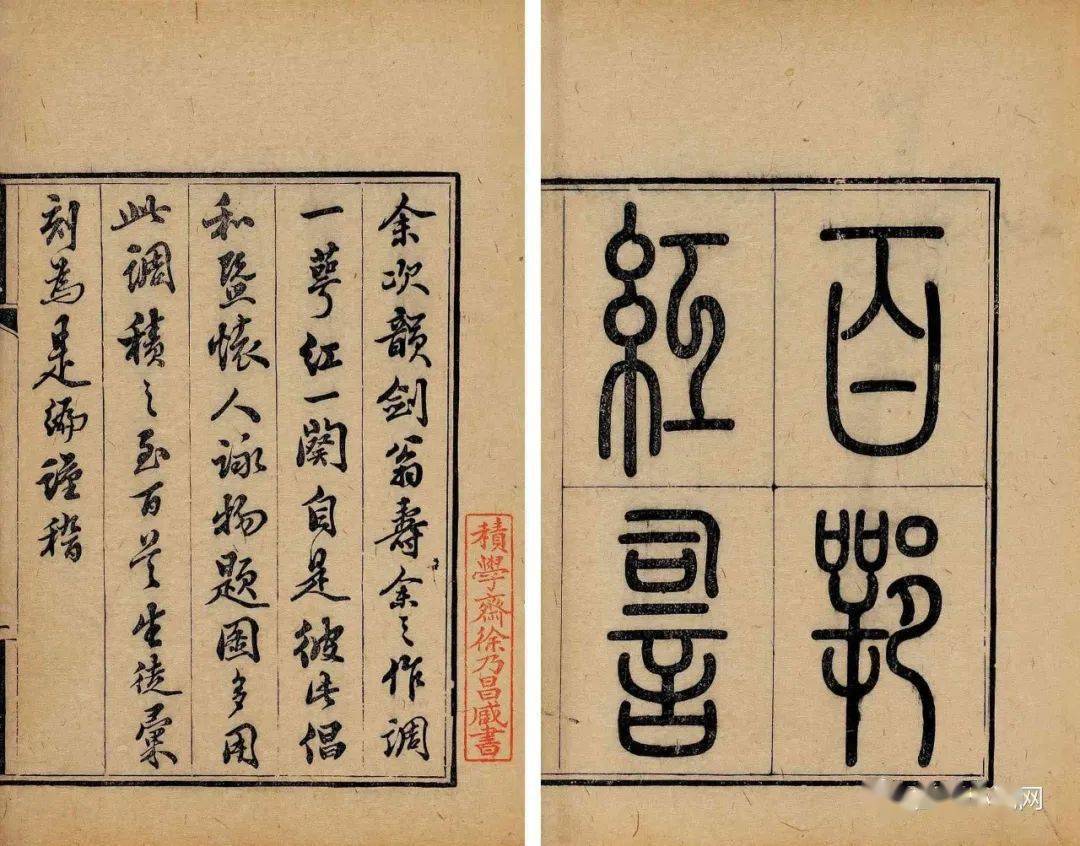 百萼
紅詞
余次韻劍翁壽余之作調
一萼紅一闋自是彼此倡
和暨懷人詠物題圖多用
此調積之至百首生徒彙
刻為是編
積學齋徐乃昌臧書
网